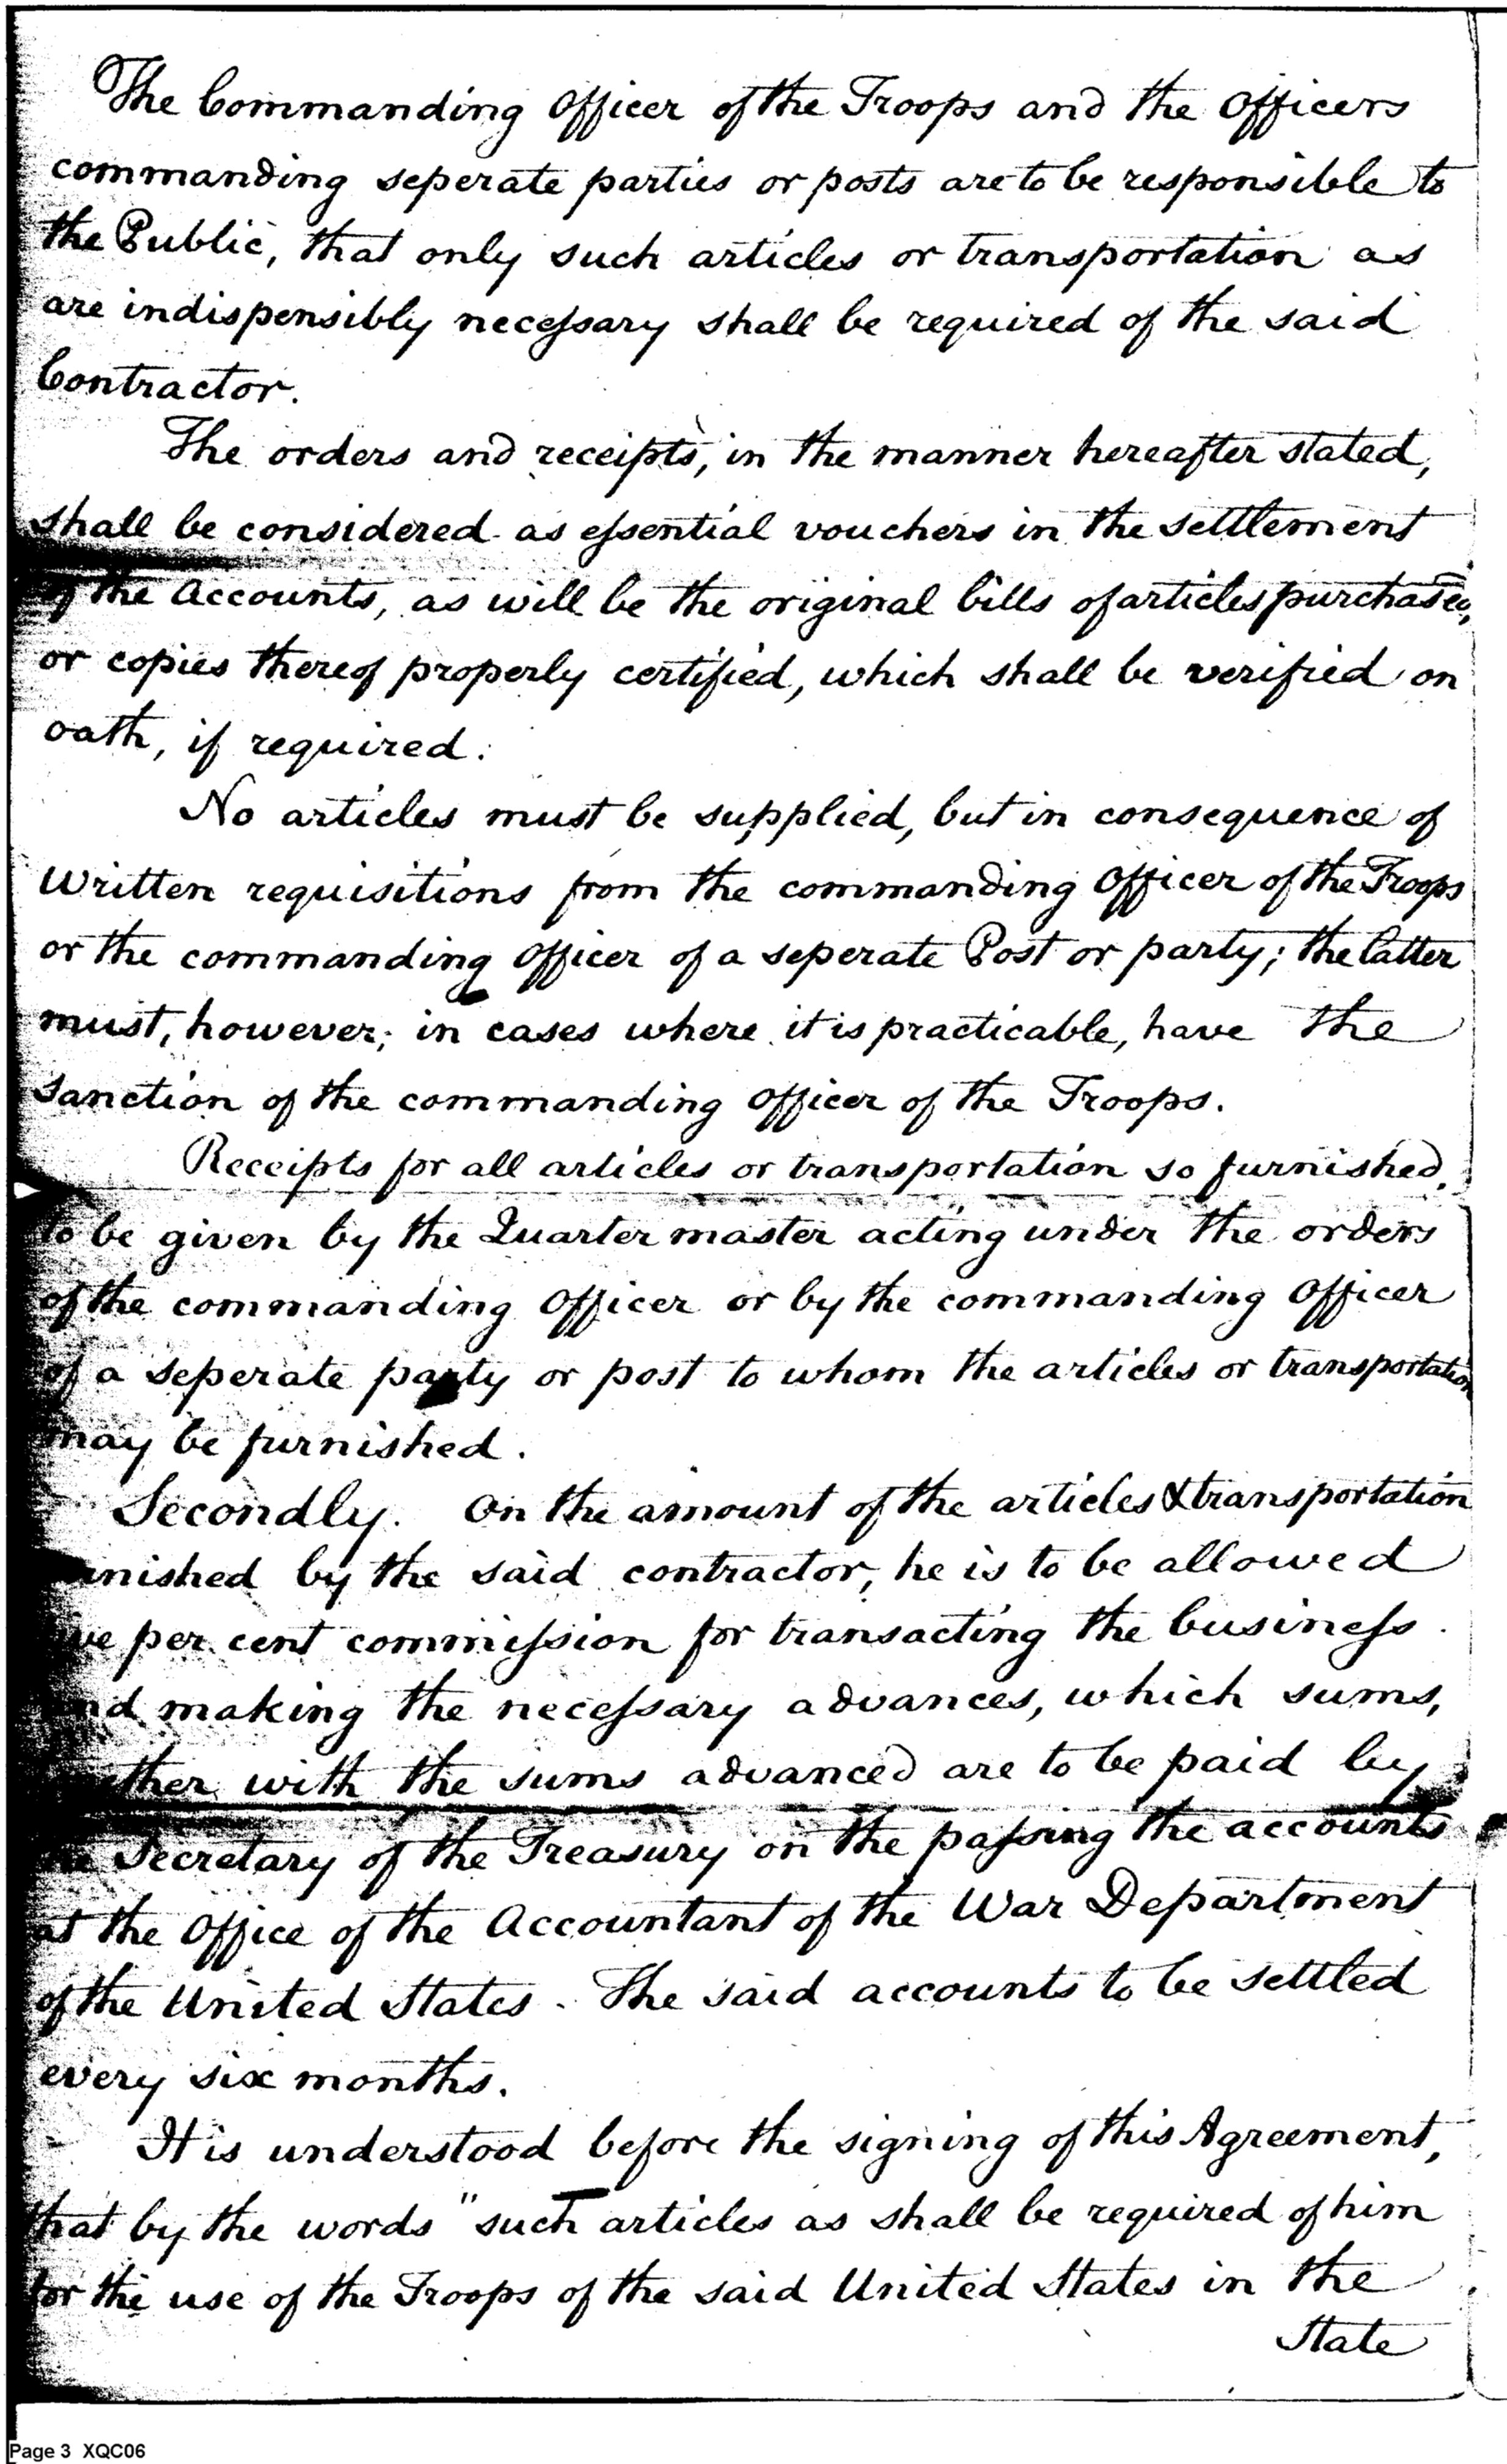 The Commanding Officer of the Troops and the Officers
commanding seperate parties or posts are to be responsible to
the Public, that only such articles or transportation as
are indispensibly necessary shall be required of the said
Contractor.
The orders and receipts, in the manner hereafter stated,
shall be considered as essential vouchers in the settlement
of the Accounts, as will be the original bills of articles purchased,
or copies thereof properly certified, which shall be verified on
oath, if required.
No articles must be supplied, but in consequence of
written requisitions from the commanding Officer of the Troops
or the commanding Officer of a seperate Post or party; the latter
must, however, in cases where it is practicable, have the
sanction of the commanding Officer of the Troops.
Receipts for all articles or transportation so furnished,
to be given by the Quarter master acting under the orders
of the commanding Officer or by the commanding Officer
of a seperate party or post to whom the articles or transportation
may be furnished.
Secondly. On the amount of the articles & transportation
nished by the said contractor, he is to be allowed
ve per cent commission for transacting the business
and making the necessary advances, which sums,
ether with the sums advanced are to be paid by
the Secretary of the Treasury on the passing the accounts
at the Office of the Accountant of the War Department
of the United States. The said accounts to be settled
every six months.
It is understood before the signing of this Agreement,
that by the words "such articles as shall be required of him
for the use of the Troops of the said United States in the
State
Page 3 XQC06